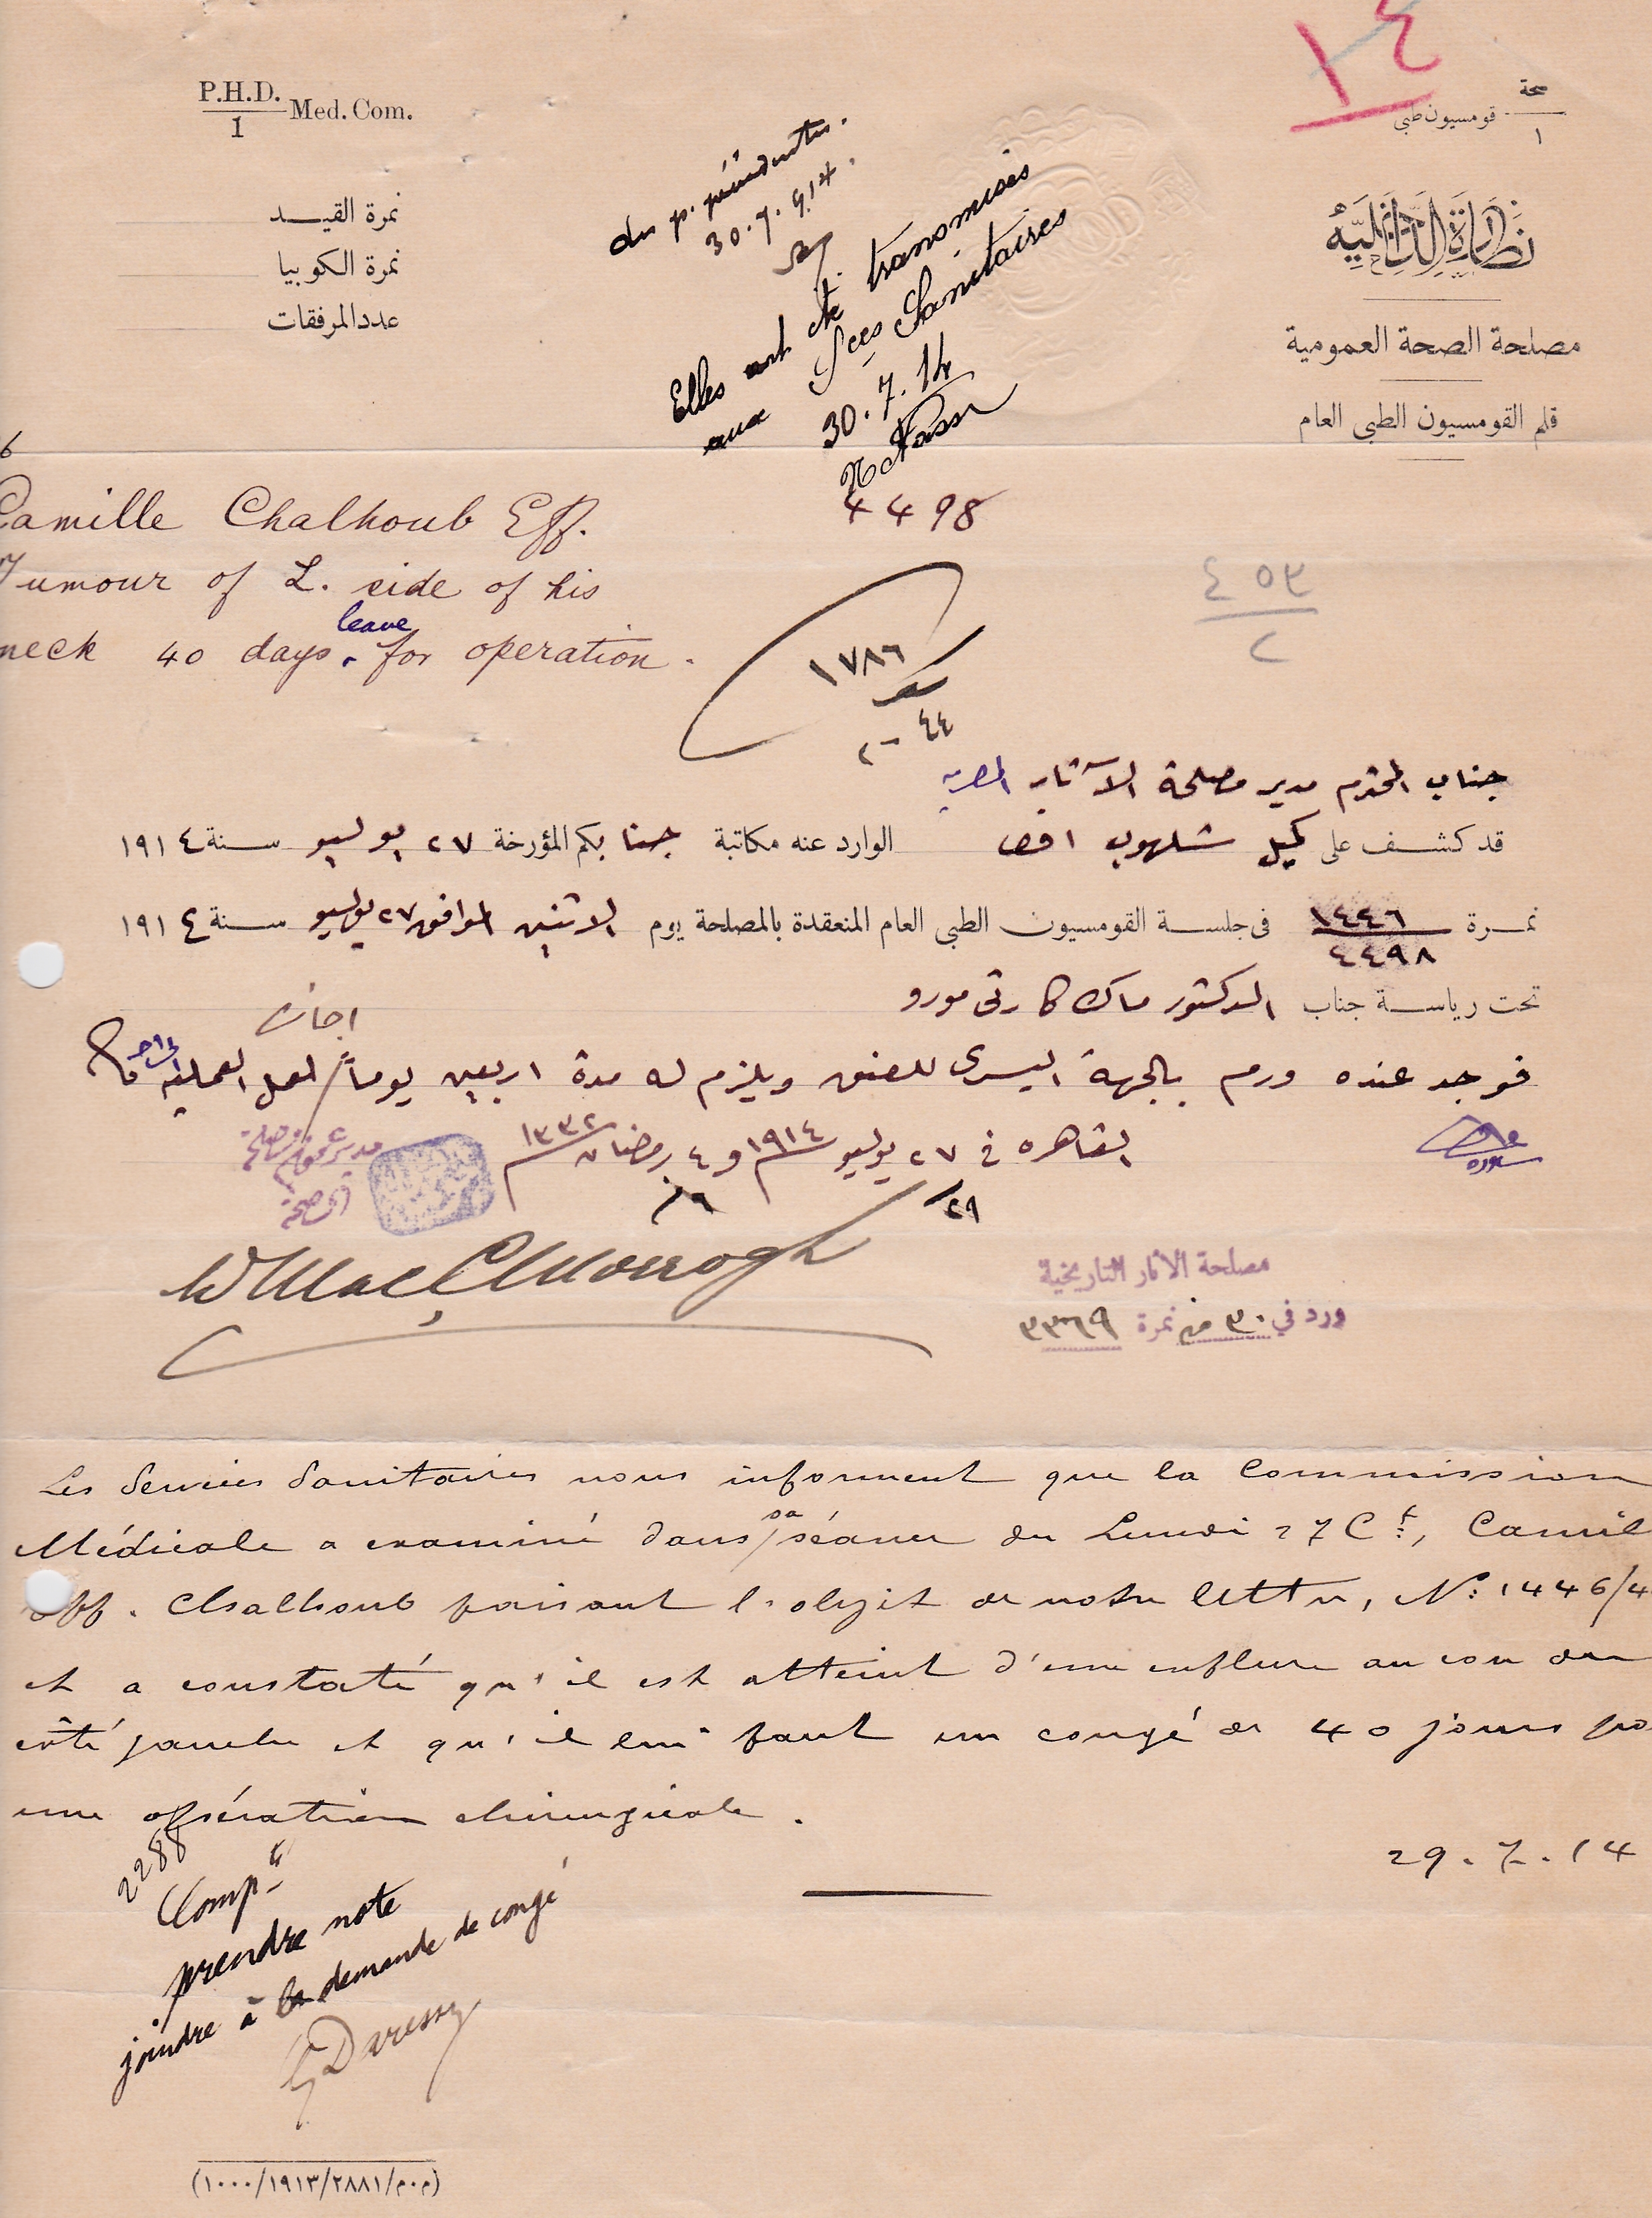 ١٤
P.H.D.
1
Med. Com.
صحة
١
قومسيون طبى
نمرة القيـــد
نمرة الكوبيا
عدد المرفقات
نظارة الداخلية
مصلحة الصحة العمومية
قلم القومسيون الطبى العام
30.7.914.
Elles ont été transmises
aux Sces Sanitaires
30.7.14
Camille Chalhoub Eff.
Tumour of L. side of his
neck 40 days leave for operation.
4498
٤٥٣
٢
١٧٨٦
٤٤ - ٢
جناب المحترم مدير مصلحة الآثار المصرية
قد كشف على كميل شلهوب افندى الوارد عنه مكاتبة جنابكم المؤرخة ٢٧ يوليو سنة ١٩١٤
نمرة ١٤٤٦ فى جلسة القومسيون الطبى العام المنعقدة بالمصلحة يوم الاثنين الموافق ٢٧ يوليو سنة ١٩١٤
٤٤٩٨
تحت رياسة جناب الدكتور ماك كارتى مورو
اجازه
فوجد عنده ورم بالجهة اليسرى للعنق ويلزم له مدة اربعين يوماً لعمل العملية
القاهره فى ٢٧ يوليو ١٩١٤ و ٤ رمضان ١٣٣٢
٢٩
مدير عموم مصلحة
الصحة
W MacCMorrogh
مصلحة الاثار التاريخية
ورد في ٣٠ منه نمرة ٣٣٦٩
Les Services Sanitaires nous informent que la Commission
Médicale a examiné dans sa séance du Lundi 27 Ct, Camil
Eff. Chalhoub faisant l'objet de notre lettre, N: 1446/4
et a constaté qu'il est atteint d'une enflure au cou du
côté gauche et qu'il lui faut un congé de 40 jours po
une opération chirurgicale.
29.7.14
2288
Compté
prendre note
joindre à la demande de congé
G Daressy
(م.م/٢٨٨١/١٩١٣/١٠٠٠)